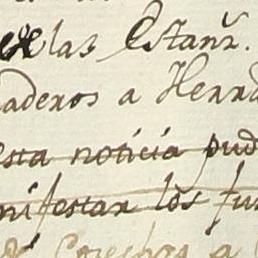 las Estanz.
aderos a Herra
esta noticia pud
nifestar los fu
Cosechas a